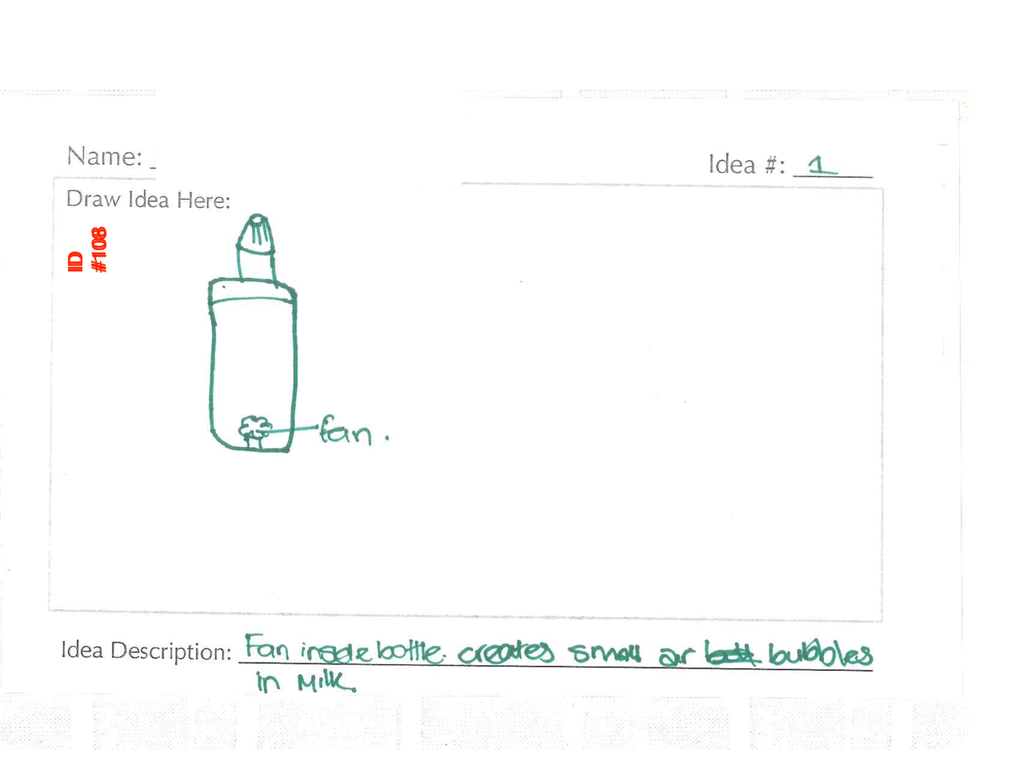 Name:
Idea #: 1
Draw Idea Here:
ID
#108
fan.
Idea Description: Fan inside bottle. creates small air bubbles
in Milk.